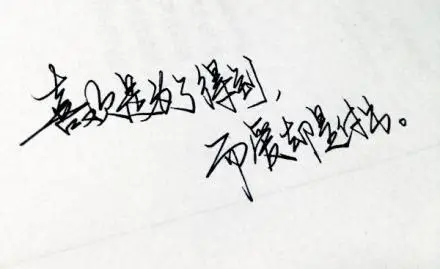 喜欢是为了得到，
而爱却是付出。